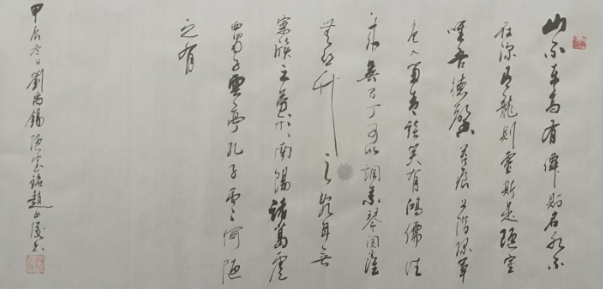 山不在高有僊則名水不
在深有龍則靈斯是陋室
唯吾德馨苔痕上階綠草
色入簾青談笑有鴻儒往
來無白丁可以調素琴閱金
無絲竹之亂耳無
案牘之勞形南陽諸葛廬
西蜀子雲亭孔子云何陋
之有
甲辰冬日劉禹錫陋室銘趙正